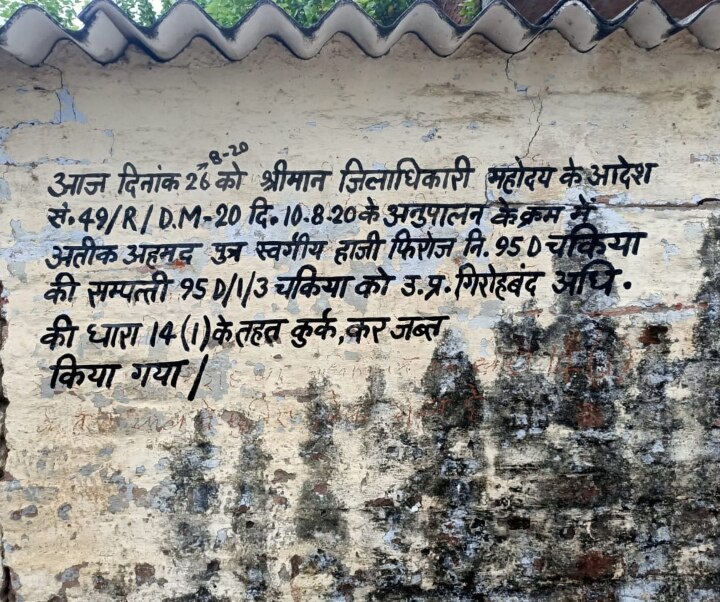 आज दिनांक 26-8-20 को श्रीमान जिलाधिकारी महोदय के आदेश
सं. 49/R/D.M-20 दि. 10.8.20 के अनुपालन के क्रम में
अतीक अहमद पुत्र स्वर्गीय हाजी फिरोज नि. 95 D चकिया
की सम्पत्ती 95 D/1/3 चकिया को उ.प्र. गिरोहबंद अधि.
की धारा 14(1) के तहत कुर्क, कर जब्त
किया गया /